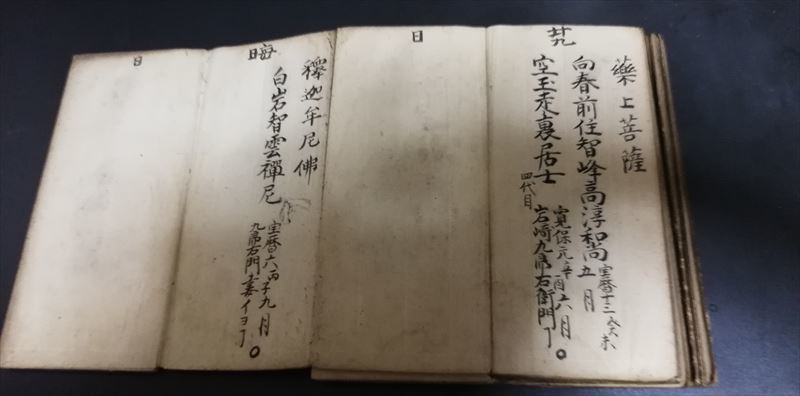 藥上菩薩
廿九
向春前住智峰高淳和尚
宝暦十三癸未
五月
空玉走裏居士
四代目
寛保元辛酉六月
岩崎九鼎右衛門
日
釋迦牟尼佛
晦
白岩智雲禪尼
宝暦六丙子九月
九鼎右門妻イヨ
日